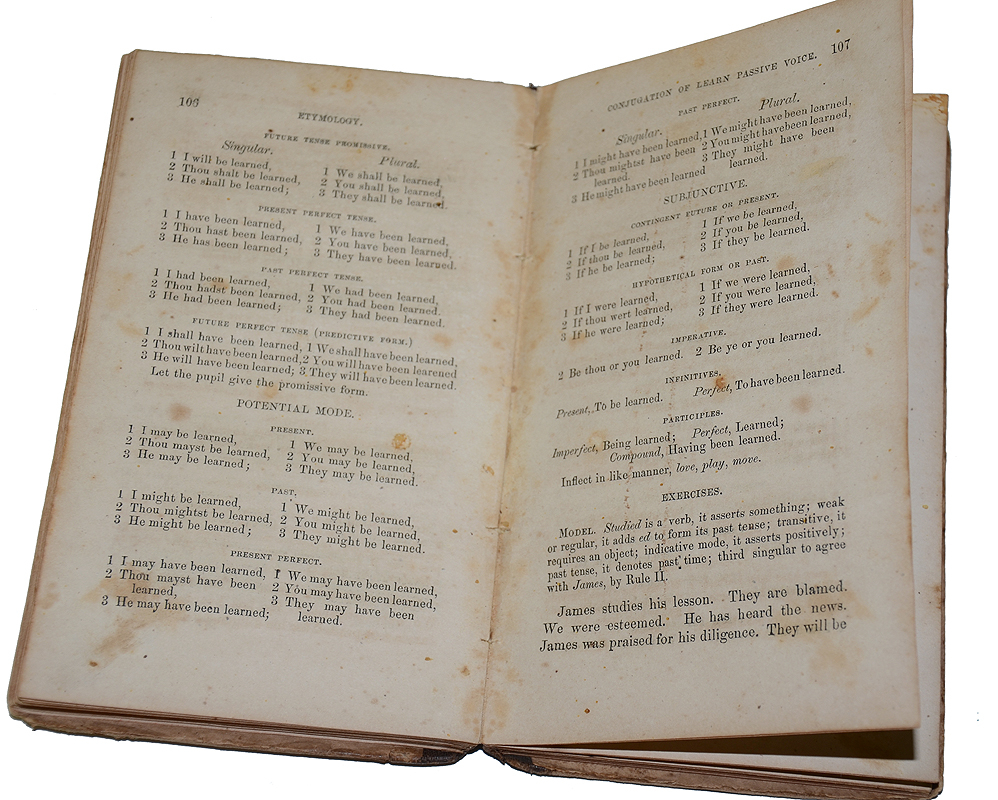 106
ETYMOLOGY.
FUTURE TENSE PROMISSIVE.
Singular. Plural.
1 I will be learned, 1 We shall be learned,
2 Thou shalt be learned, 2 You shall be learned,
3 He shall be learned; 3 They shall be learned.
PRESENT PERFECT TENSE.
1 I have been learned, 1 We have been learned,
2 Thou hast been learned, 2 You have been learned,
3 He has been learned; 3 They have been learned.
PAST PERFECT TENSE.
1 I had been learned, 1 We had been learned,
2 Thou hadst been learned, 2 You had been learned.
3 He had been learned; 3 They had been learned.
FUTURE PERFECT TENSE (PREDICTIVE FORM.)
1 I shall have been learned, 1 We shall have been learned,
2 Thou wilt have been learned, 2 You will have been learened
3 He will have been learned; 3 They will have been learned.
Let the pupil give the promissive form.
POTENTIAL MODE.
PRESENT.
1 I may be learned, 1 We may be learned,
2 Thou mayst be learned, 2 You may be learned,
3 He may be learned; 3 They may be learned.
PAST.
1 I might be learned, 1 We might be learned,
2 Thou mightst be learned, 2 You might be learned,
3 He might be learned; 3 They might be learned.
PRESENT PERFECT.
1 I may have been learned, 1 We may have been learned,
2 Thou mayst have been 2 You may have been learned,
learned, 3 They may have been
3 He may have been learned; learned.
CONJUGATION OF LEARN PASSIVE VOICE. 107
PAST PERFECT.
Singular. Plural.
1 I might have been learned, 1 We might have been learned,
2 Thou mightst have been 2 You might have been learned,
learned. 3 They might have been
3 He might have been learned learned.
SUBJUNCTIVE.
CONTINGENT FUTURE OR PRESENT.
1 If I be learned, 1 If we be learned,
2 If thou be learned, 2 If you be learned,
3 If he be learned; 3 If they be learned.
HYPOTHETICAL FORM OR PAST.
1 If I were learned, 1 If we were learned,
2 If thou wert learned, 2 If you were learned,
3 If he were learned; 3 If they were learned.
IMPERATIVE.
2 Be thou or you learned. 2 Be ye or you learned.
INFINITIVES.
Present, To be learned. Perfect, To have been learned.
PARTICIPLES.
Imperfect, Being learned; Perfect, Learned;
Compound, Having been learned.
Inflect in like manner, love, play, move.
EXERCISES.
MODEL. Studied is a verb, it asserts something; weak
or regular, it adds ed to form its past tense; transitive, it
requires an object; indicative mode, it asserts positively;
past tense, it denotes past time; third singular to agree
with James, by Rule II.
James studies his lesson. They are blamed.
We were esteemed. He has heard the news.
James was praised for his diligence. They will be